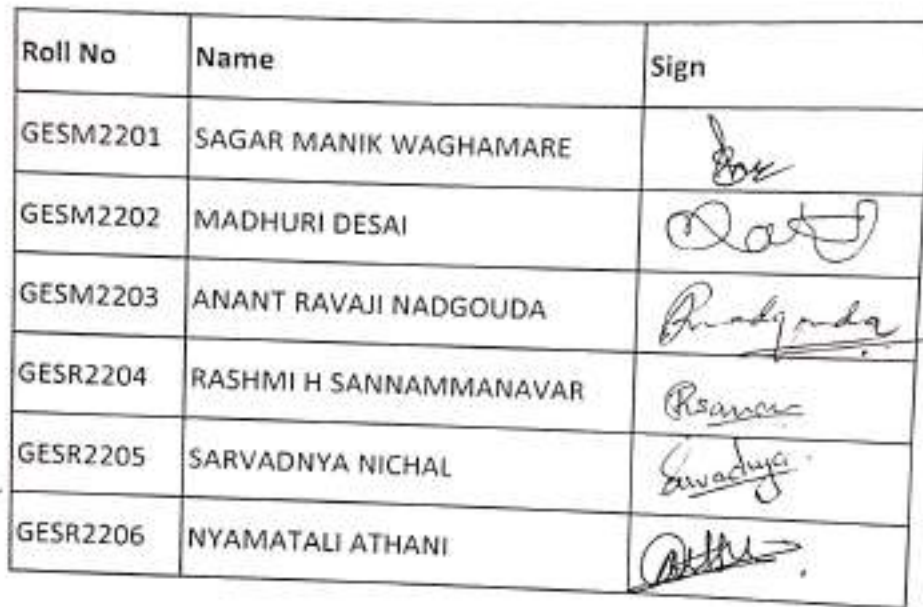 Roll No Name Sign
GESM2201 SAGAR MANIK WAGHAMARE
GESM2202 MADHURI DESAI
GESM2203 ANANT RAVAJI NADGOUDA
GESR2204 RASHMI H SANNAMMANAVAR
GESR2205 SARVADNYA NICHAL Sarvadnya
GESR2206 NYAMATALI ATHANI